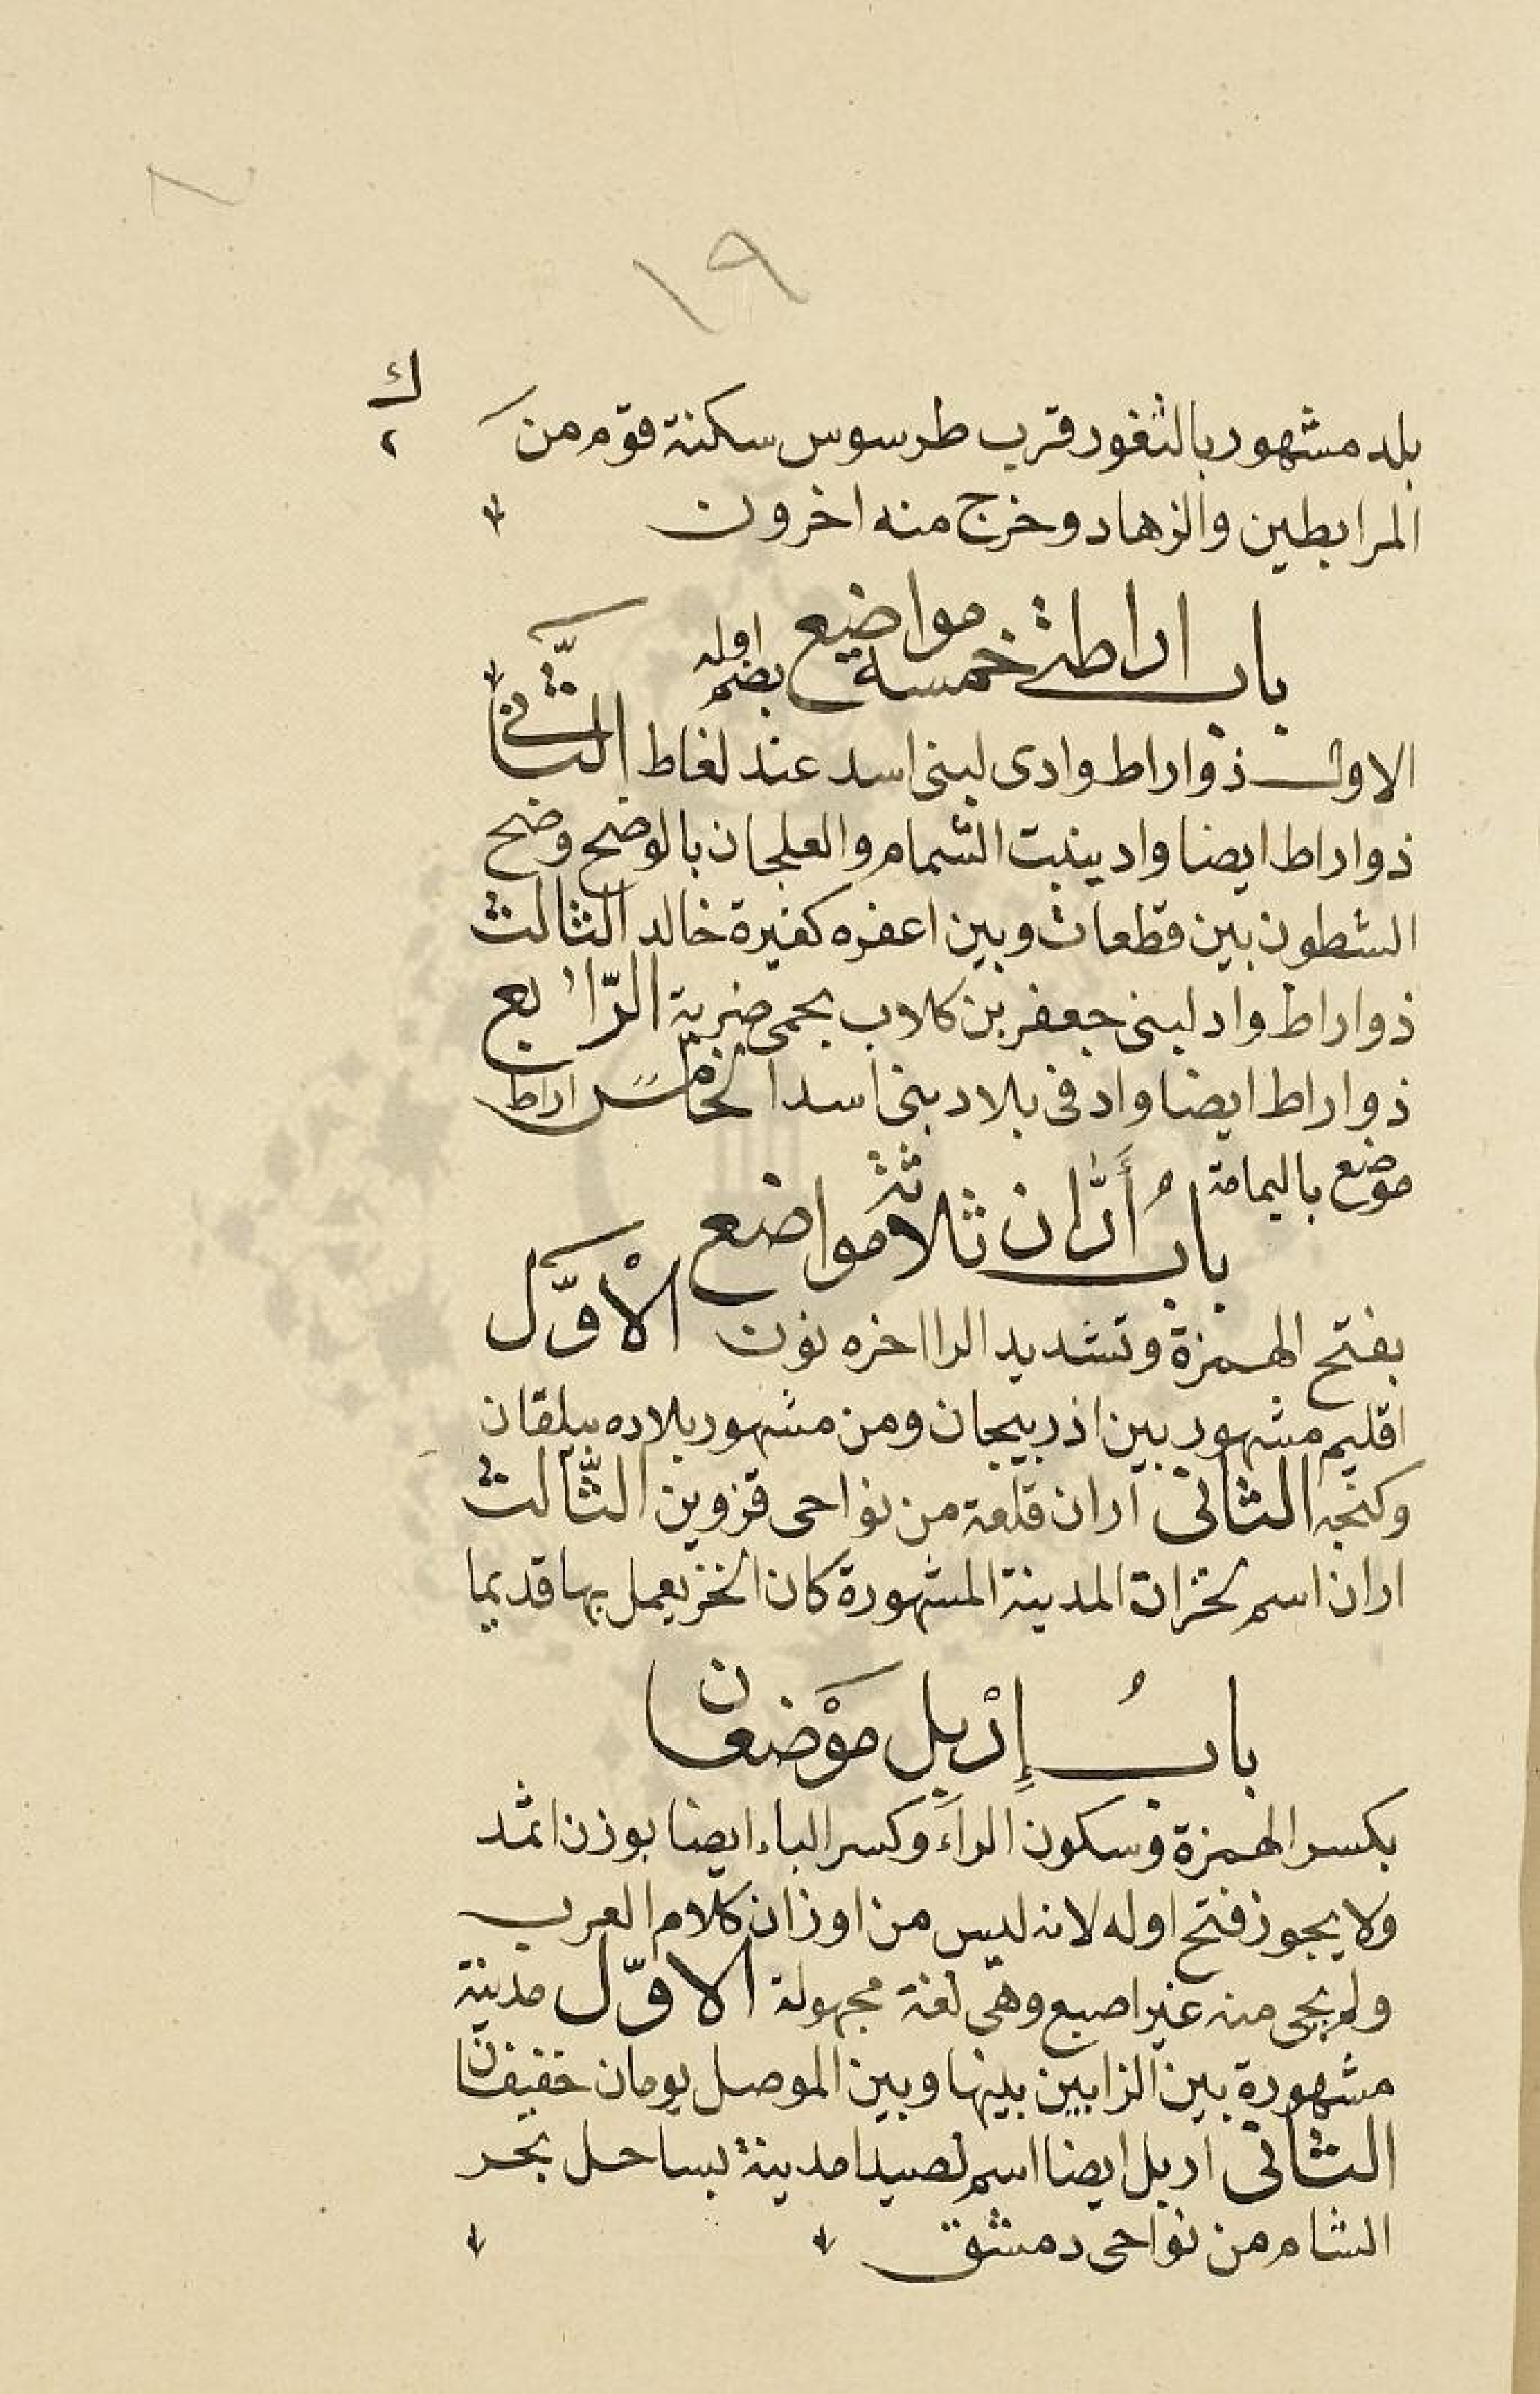 ١٩
ك
٢
بلد مشهور بالثغور قرب طرسوس سكنة قوم من
المرابطين والزهاد وخرج منه اخرون
باب اراطة خمسة مواضيع بضم اوله
الاول ذواراط وادى لبنى اسد عند لغاط الثّانى
ذواراط ايضا واد ينبت الثمام والعلجان بالوضح وضح
الشطون بين قطعات وبين اعفره كفيرة خالد الثالث
ذواراط واد لبنى جعفر بن كلاب بحمى ضرية الرّابع
ذواراط ايضا واد فى بلاد بنى اسد الخامس اراط
موضع باليمامة
بابُ أَرَّان ثلاثة مواضع
بفتح الهمزة وتشديد الرا اخره نون الْاوَّل
اقليم مشهور بين اذربيجان ومن مشهور بلاده بيلقان
وكنجه الثانى اران قلعة من نواحى قزوين الثَّالث
اران اسم لحران المدينة المشهورة كان الخز يعمل بها قديما
بابُ إِرْبِل مَوْضعان
بكسر الهمزة وسكون الراءَ وكسر الباء ايضا بوزن اثمد
ولا يجوز فتح اوله لانه ليس من اوزان كلام العرب
ولم يجى منه غير اصبع وهى لغة مجهولة الاوّل مدينة
مشهورة بين الزابين بينها وبين الموصل يومان خفيفان
الثانى اربل ايضا اسم لصيدا مدينة بساحل بحر
الشام من نواحى دمشق